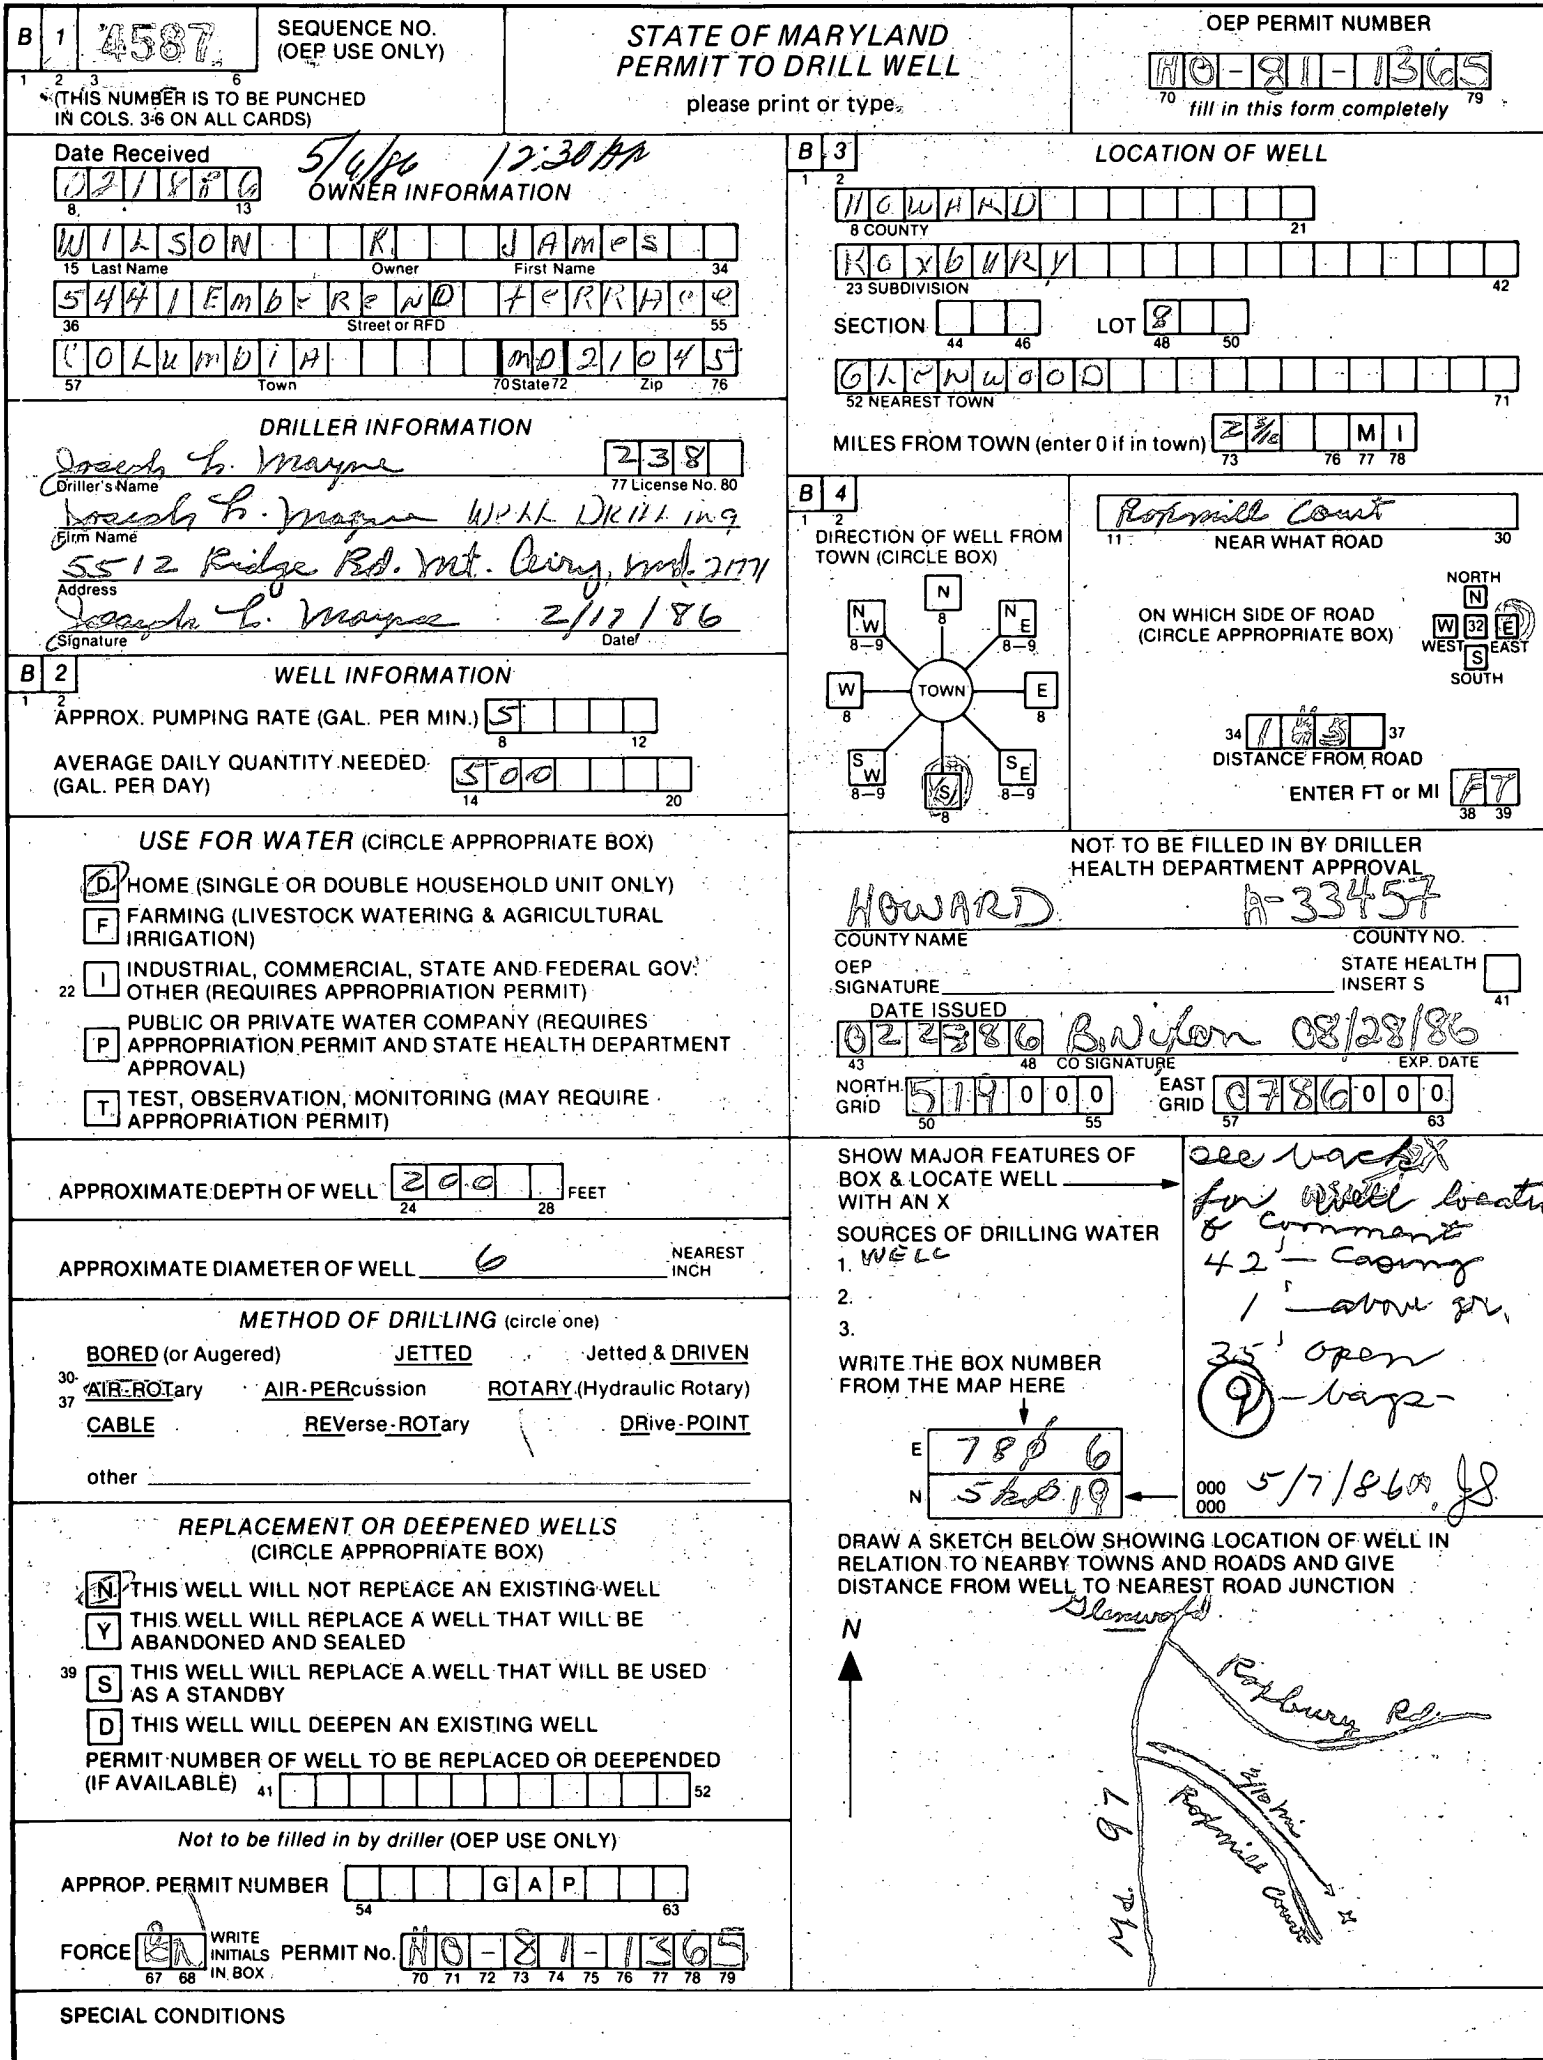 B 1 4587 SEQUENCE NO. (OEP USE ONLY)
1 2 3 6
(THIS NUMBER IS TO BE PUNCHED
IN COLS. 3-6 ON ALL CARDS)
STATE OF MARYLAND
PERMIT TO DRILL WELL
please print or type
OEP PERMIT NUMBER
HO-81-1365
70 79
fill in this form completely
Date Received 5/6/86 12:30
021886
8 13
OWNER INFORMATION
WILSON R. JAmes
15 Last Name Owner First Name 34
5441 EmbeReND teRRAce
36 Street or RFD 55
COLumbiA mD 21045
57 Town 70 State 72 Zip 76
DRILLER INFORMATION
Joseph L. Mayne 238
Driller's Name 77 License No. 80
Joseph L. Mayne WeLL DRiLLing
Firm Name
5512 Ridge Rd. Mt. Airy, Md. 21771
Address
Joseph L. Mayne 2/17/86
Signature Date
B 2 WELL INFORMATION
1 2
APPROX. PUMPING RATE (GAL. PER MIN.) 5
8 12
AVERAGE DAILY QUANTITY NEEDED
(GAL. PER DAY) 500
14 20
USE FOR WATER (CIRCLE APPROPRIATE BOX)
D HOME (SINGLE OR DOUBLE HOUSEHOLD UNIT ONLY)
F FARMING (LIVESTOCK WATERING & AGRICULTURAL
IRRIGATION)
22 I INDUSTRIAL, COMMERCIAL, STATE AND FEDERAL GOV.
OTHER (REQUIRES APPROPRIATION PERMIT)
P PUBLIC OR PRIVATE WATER COMPANY (REQUIRES
APPROPRIATION PERMIT AND STATE HEALTH DEPARTMENT
APPROVAL)
T TEST, OBSERVATION, MONITORING (MAY REQUIRE
APPROPRIATION PERMIT)
APPROXIMATE DEPTH OF WELL 200 FEET
24 28
APPROXIMATE DIAMETER OF WELL 6 NEAREST
INCH
METHOD OF DRILLING (circle one)
BORED (or Augered) JETTED Jetted & DRIVEN
30-37 AIR-ROTary AIR-PERcussion ROTARY (Hydraulic Rotary)
CABLE REVerse-ROTary DRive-POINT
other
REPLACEMENT OR DEEPENED WELLS
(CIRCLE APPROPRIATE BOX)
N THIS WELL WILL NOT REPLACE AN EXISTING WELL
Y THIS WELL WILL REPLACE A WELL THAT WILL BE
ABANDONED AND SEALED
39 S THIS WELL WILL REPLACE A WELL THAT WILL BE USED
AS A STANDBY
D THIS WELL WILL DEEPEN AN EXISTING WELL
PERMIT NUMBER OF WELL TO BE REPLACED OR DEEPENDED
(IF AVAILABLE) 41 52
Not to be filled in by driller (OEP USE ONLY)
APPROP. PERMIT NUMBER G A P
54 63
FORCE WRITE INITIALS IN BOX PERMIT No. HO-81-1365
67 68 70 71 72 73 74 75 76 77 78 79
SPECIAL CONDITIONS
B 3 LOCATION OF WELL
1 2
HOWARD
8 COUNTY 21
RoxbuRy
23 SUBDIVISION 42
SECTION LOT 8
44 46 48 50
GLeNwooD
52 NEAREST TOWN 71
MILES FROM TOWN (enter 0 if in town) 2 M I
73 76 77 78
B 4
1 2
DIRECTION OF WELL FROM
TOWN (CIRCLE BOX)
N
8
NW NE
8-9 8-9
W TOWN E
8 8
SW S SE
8-9 8 8-9
Roxmill Court
11 NEAR WHAT ROAD 30
ON WHICH SIDE OF ROAD
(CIRCLE APPROPRIATE BOX)
NORTH
N
W 32 E
WEST EAST
S
SOUTH
34 37
DISTANCE FROM ROAD
ENTER FT or MI FT
38 39
NOT TO BE FILLED IN BY DRILLER
HEALTH DEPARTMENT APPROVAL
HOWARD A-33457
COUNTY NAME COUNTY NO.
OEP
SIGNATURE
STATE HEALTH
INSERT S
41
DATE ISSUED
022886 B. Nixon 08/28/86
43 48 CO SIGNATURE EXP. DATE
NORTH GRID 519000 EAST GRID 0786000
50 55 57 63
SHOW MAJOR FEATURES OF
BOX & LOCATE WELL
WITH AN X
SOURCES OF DRILLING WATER
1. WELL
2.
3.
WRITE THE BOX NUMBER
FROM THE MAP HERE
E 78 6
N 5 19
see back
for well locatn
& comment
42' - Casing
1' - above gr.
35' open
9 - bags -
000
000
5/7/86 JS
DRAW A SKETCH BELOW SHOWING LOCATION OF WELL IN
RELATION TO NEARBY TOWNS AND ROADS AND GIVE
DISTANCE FROM WELL TO NEAREST ROAD JUNCTION
N
Glenwood
Roxbury Rd.
2/10 mi
Roxmill Court
Md 97